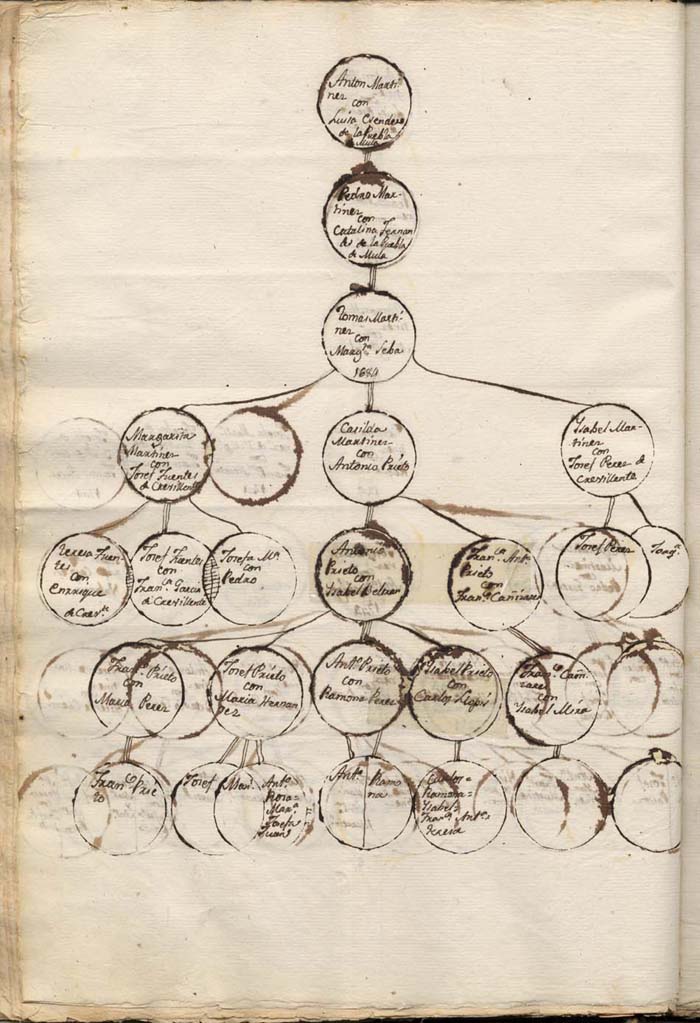 Anton Marti-
nez
con
Luisa
de la Puebla
Mula
Pedro Mar-
tinez
con
Catalina Fernan
des de la Puebla
de Mula
Tomas Marti-
nez
con
Marg.ta Seba
1684
Margarita
Martinez
con
Josef Fuentes
de Crevillente
Casilda
Martinez
con
Antonio Prieto
Ysabel Mar-
tinez
con
Josef Perez de
Crevillente
Teresa Fuen-
tes
con
Enrrique
de Crev.te
Josef Fuentes
con
Fran.ca Garcia
de Crevillente
Josefa M.a
con
Pedro
Antonio
Prieto
con
Ysabel Beltran
Fran.ca Ant.a
Prieto
con
Fran.co Cañizares
Josef Perez
Fran.co Prieto
con
Maria Perez
Josef Prieto
con
Maria Hernan
dez
Ant.o Prieto
con
Ramona Perez
Ysabel Prieto
con
Carlos
Fran.co Cañi-
zares
con
Ysabel Mira
Fran.co Prie
to
Josef
Man.l
Ant.o
Rosa=
Mar.a
Josefa
Juan
Ant.o
Ramo
na
Carlos=
Ramona=
Ysabel=
Fran.co Ant.o
Teresa